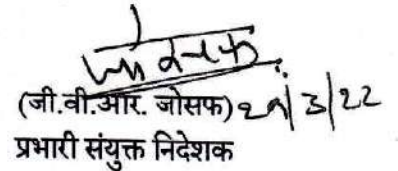 (जी.वी.आर. जोसफ) 29/3/22
प्रभारी संयुक्त निदेशक